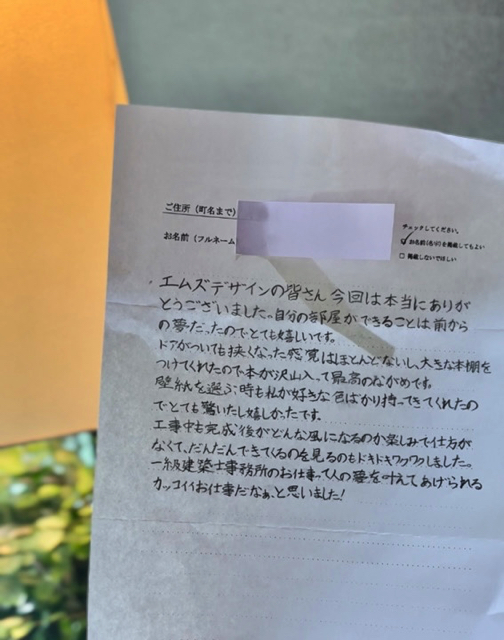 ご住所（町名まで）
お名前（フルネーム
チェックしてください。
お名前(名り)を掲載してもよい
掲載しないでほしい
エムズデザインの皆さん今回は本当にありが
とうございました。自分の部屋ができることは前から
の夢だったのでとても嬉しいです。
ドアがついても狭くなった感覚はほとんどないし、大きな本棚を
つけてくれたので本が沢山入って最高のながめです。
壁紙を選ぶ時も私が好きな色ばかり持ってきてくれたの
でとても驚いたし嬉しかったです。
工事中も完成後がどんな風になるのか楽しみで仕方が
なくて、だんだんできてくるのを見るのもドキドキワクワクしました。
一級建築士事務所のお仕事って人の夢を叶えてあげられる
カッコイイお仕事だなぁ、と思いました!